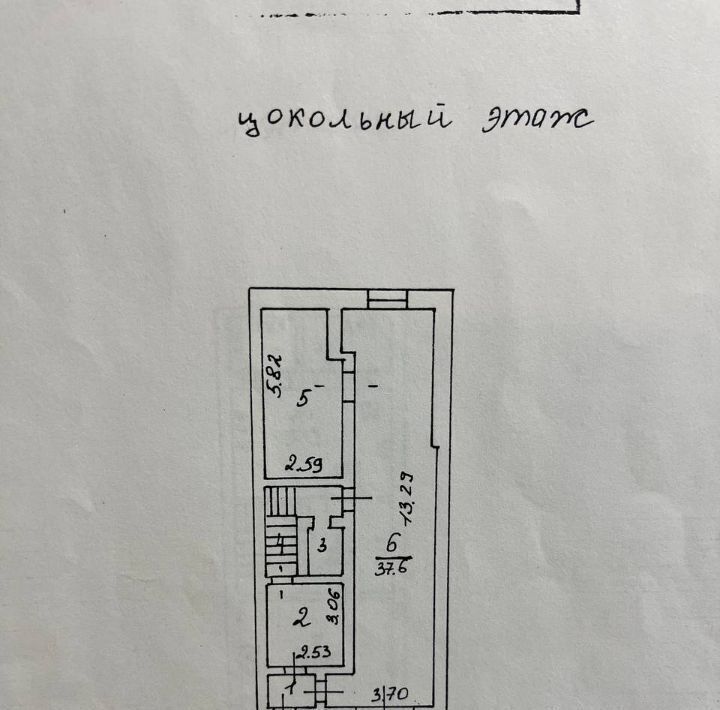 цокольный этаж
5.82
5
2.59
13.29
4
3
6
37.6
2
3.06
2.53
1
3.70